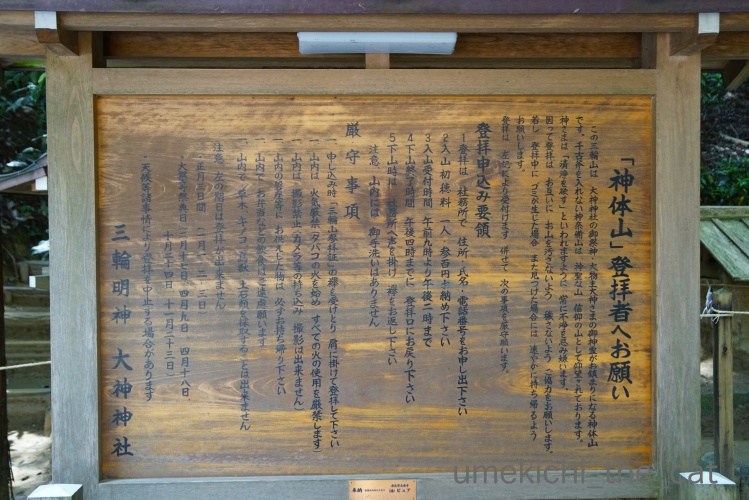 「神体山」登拝者へお願い
この三輪山は 大神神社の御祭神 大物主大神さまの御神霊がお鎮まりになる神体山
です。千古斧を入れない神奈備山は 神聖な山 信仰の山として仰望されております。
神さまは「清浄を欲す」といわれますように 常に不浄を忌み嫌います。
因って登拝は お互いに お山を汚さないよう 穢さないよう ご協力をお願いします。
若し 登拝中に ゴミが生じた場合 また見つけた場合には 速やかに持ち帰るよう
お願いします。
登拝は 左記により受付けます。併せて 次の事項を厳守願います。
登拝申込み要領
1 登拝は 社務所で 住所・氏名・電話番号をお申し出下さい
2 入山初穂料 一人・参百円お納め下さい
3 入山受付時間 午前九時より午後二時まで
4 下山終了時間 午後四時までに 登拝口にお戻り下さい
5 下山時は 社務所へ声を掛け 襷をお返し下さい
注意、山内には 御手洗いはありません
厳守事項
一 申し込み時「三輪山参拝証」の襷を受けとり 肩に掛けて登拝して下さい
一 山内は 火気厳禁(タバコの火を始め すべての火の使用を厳禁します)
一 山内は 撮影禁止(カメラ等の持ち込み 撮影は出来ません)
一 山内の磐座等に お供えした物は 必ずお持ち帰り下さい
一 山内で お弁当などの飲食はご遠慮願います
一 山内は 草木・キノコ・鳥獣・土石類を採取すること等は出来ません
注意、左の期日は登拝が出来ません
・正月三日間 (一月一、二、三日
・大祭等祭典日(二月十七日、四月九日 四月十八日、
十月二十四日、十一月二十三日)
・天候等諸事情により登拝を中止する場合があります
三輪明神 大神神社
奉納
㈱ピュア
umekichi